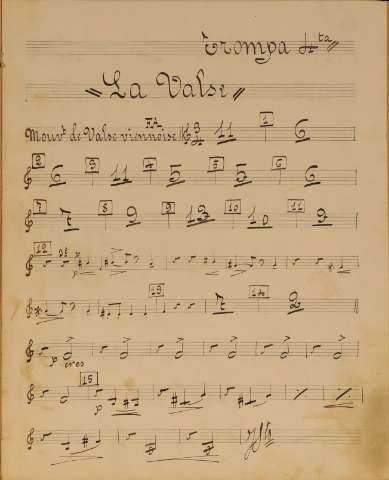 Trompa 4ta
"La Valse"
Mouvt de Valse viennoise FA 3 4 11 1 6
2 6 3 11 4 5 5 5 6 6
7 7 8 9 9 13 10 10 11 9
12
13 7 14 2
p cres
15 p